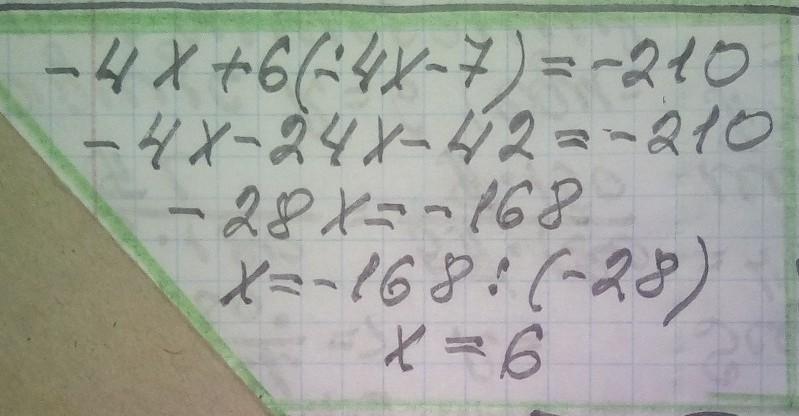 -4x+6(-4x-7)=-210
-4x-24x-42=-210
-28x=-168
x=-168:(-28)
x=6